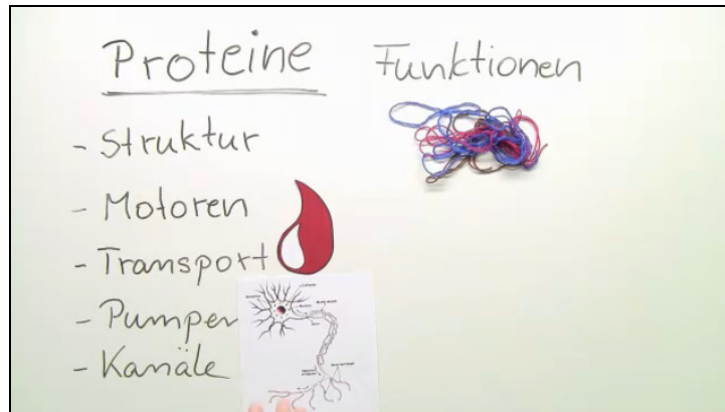 Proteine Funktionen
- Struktur
- Motoren
- Transport
- Pumpen
- Kanäle